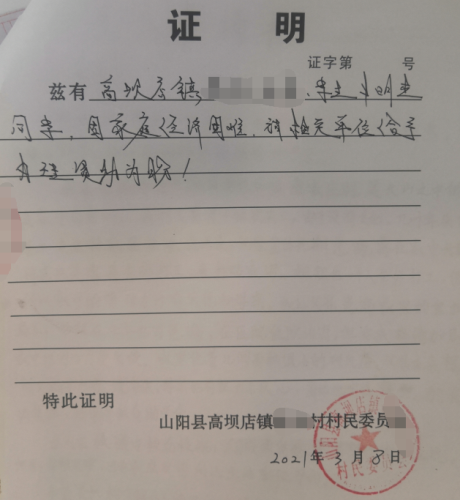 证 明
证字第 号
兹有 高坝店镇 学生
同学,因家庭经济困难,请相关单位给予
办理资助为盼!
特此证明
山阳县高坝店镇 村村民委员
2021年 3月 8日
村民委